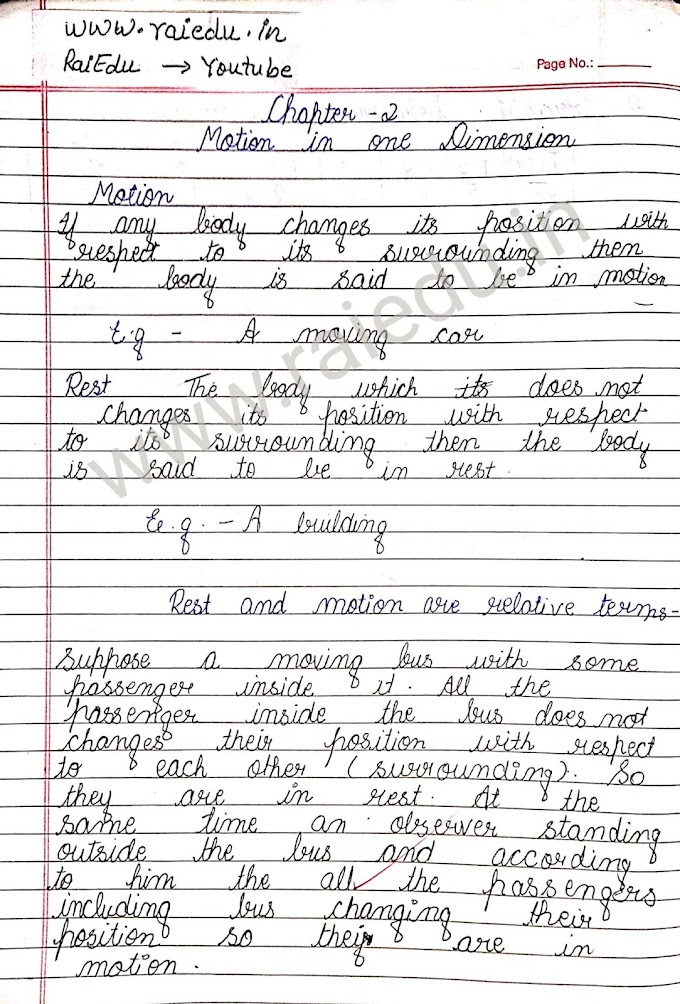 www.raiedu.in
RaiEdu → Youtube
Page No.:
Chapter - 2
Motion in one Dimension
Motion
If any body changes its position with
respect to its surrounding then
the body is said to be in motion
E.g - A moving car
Rest The body which its does not
changes its position with respect
to its surrounding then the body
is said to be in rest.
E.g. - A building
Rest and motion are relative terms-
Suppose a moving bus with some
passenger inside it. All the
passenger inside the bus does not
changes their position with respect
to each other (surrounding). So
they are in rest. At the
same time an observer standing
outside the bus and according
to him the all the passengers
including bus changing their
position so they are in
motion.
www.raiedu.in